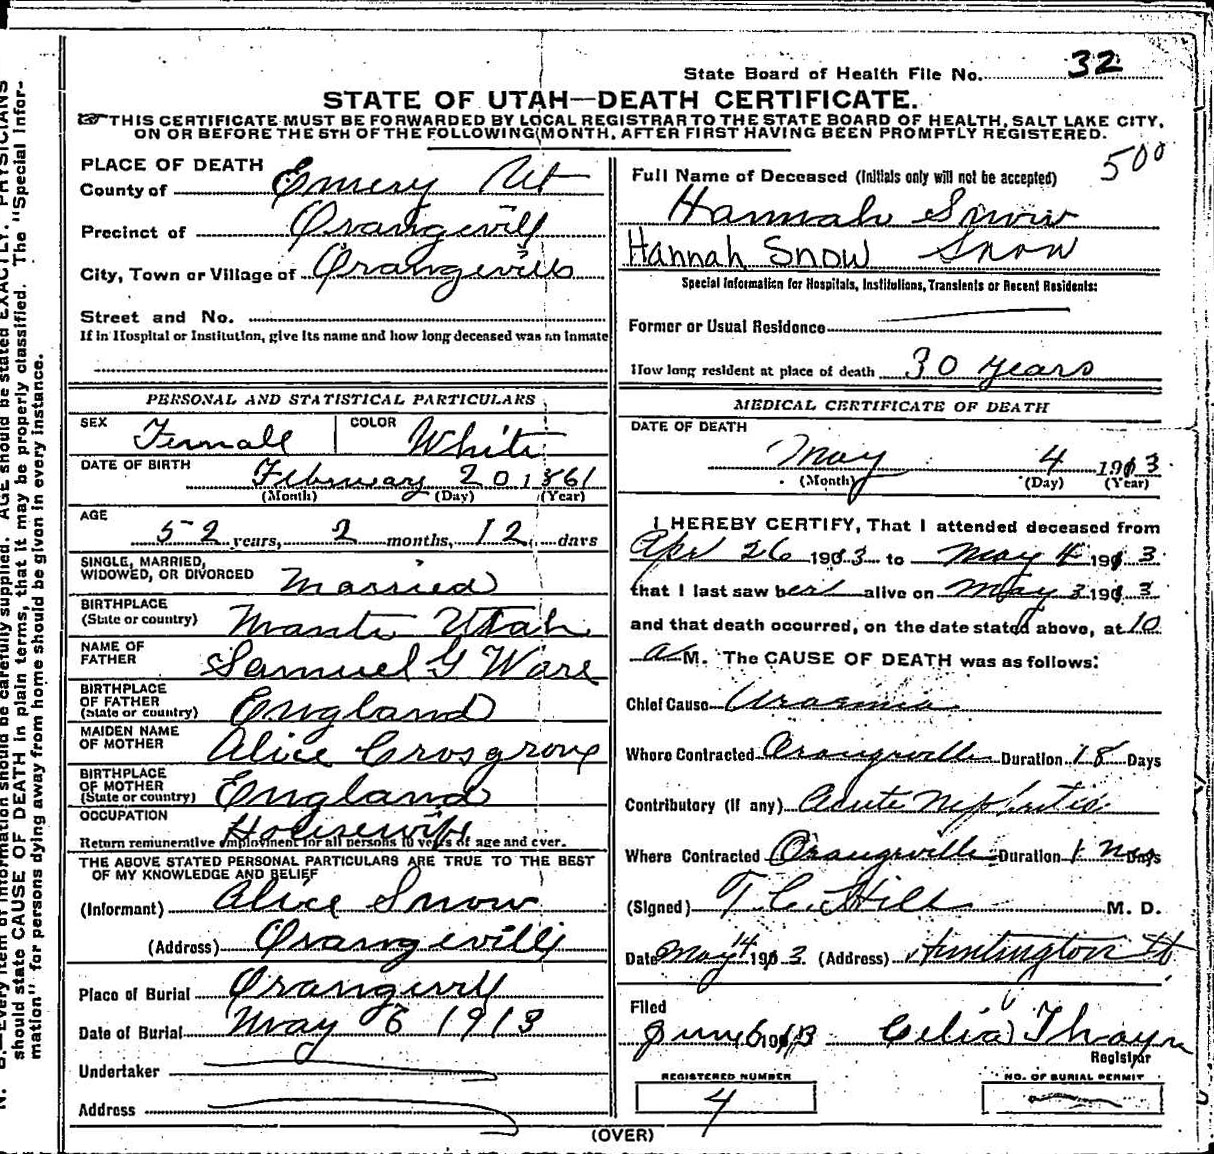 State Board of Health File No. 32
STATE OF UTAH—DEATH CERTIFICATE.
THIS CERTIFICATE MUST BE FORWARDED BY LOCAL REGISTRAR TO THE STATE BOARD OF HEALTH, SALT LAKE CITY,
ON OR BEFORE THE 5TH OF THE FOLLOWING MONTH, AFTER FIRST HAVING BEEN PROMPTLY REGISTERED.
500
PLACE OF DEATH
County of Emery Ut
Precinct of Orangevill
City, Town or Village of Orangeville
Street and No.
If in Hospital or Institution, give its name and how long deceased was an inmate
PERSONAL AND STATISTICAL PARTICULARS
SEX Femall COLOR White
DATE OF BIRTH February 20 1861
(Month) (Day) (Year)
AGE
52 years, 2 months, 12 days
SINGLE, MARRIED,
WIDOWED, OR DIVORCED Married
BIRTHPLACE
(State or country) Manti Utah
NAME OF
FATHER Samuel G Ware
BIRTHPLACE
OF FATHER
(State or country) England
MAIDEN NAME
OF MOTHER Alice Crosgrove
BIRTHPLACE
OF MOTHER
(State or country) England
OCCUPATION Housewife
Return remunerative employment for all persons 10 years of age and over.
THE ABOVE STATED PERSONAL PARTICULARS ARE TRUE TO THE BEST
OF MY KNOWLEDGE AND BELIEF
(Informant) Alice Snow
(Address) Orangeville
Place of Burial Orangevill
Date of Burial May 6 1913
Undertaker
Address
Full Name of Deceased (Initials only will not be accepted)
Hannah Snow
Hannah Snow Snow
Special Information for Hospitals, Institutions, Transients or Recent Residents:
Former or Usual Residence
How long resident at place of death 30 years
MEDICAL CERTIFICATE OF DEATH
DATE OF DEATH
May 4 1913
(Month) (Day) (Year)
I HEREBY CERTIFY, That I attended deceased from
Apr 26 1913 to May 4 1913
that I last saw her alive on May 3 1913
and that death occurred, on the date stated above, at 10
a M. The CAUSE OF DEATH was as follows:
Chief Cause Uraemia
Where Contracted Orangeville Duration 18 Days
Contributory (if any) Acute Nephritis
Where Contracted Orangeville Duration 1 Days
(Signed) T. C. Hill M. D.
Date May 14 1913 (Address) Huntington Ut
Filed
June 6 1913 Celia Thayn
Registrar
REGISTERED NUMBER
4
NO. OF BURIAL PERMIT
(OVER)
N. B.—Every item of information should be carefully supplied. AGE should be stated EXACTLY. PHYSICIANS
should state CAUSE OF DEATH in plain terms, that it may be properly classified. The "Special Infor-
mation" for persons dying away from home should be given in every instance.